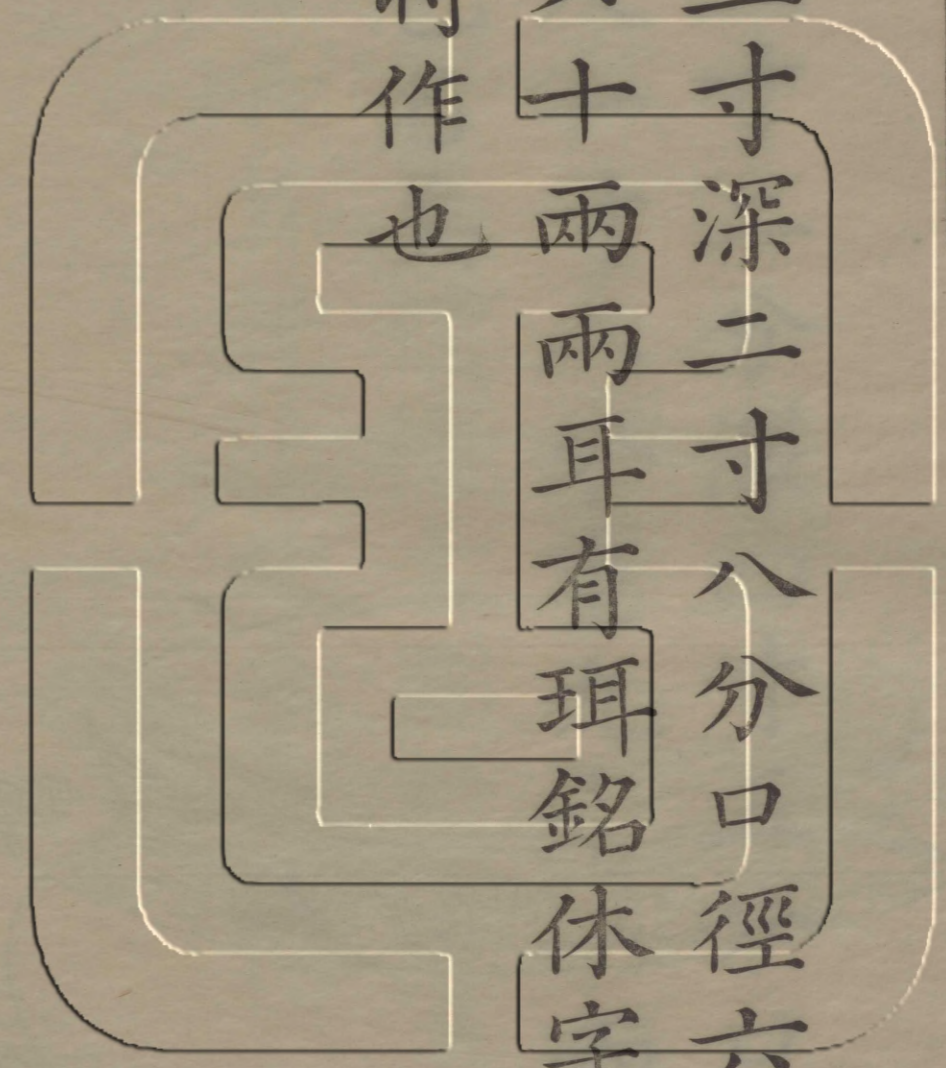 寸深二寸八分口徑六
十兩兩耳有珥銘休字
作也